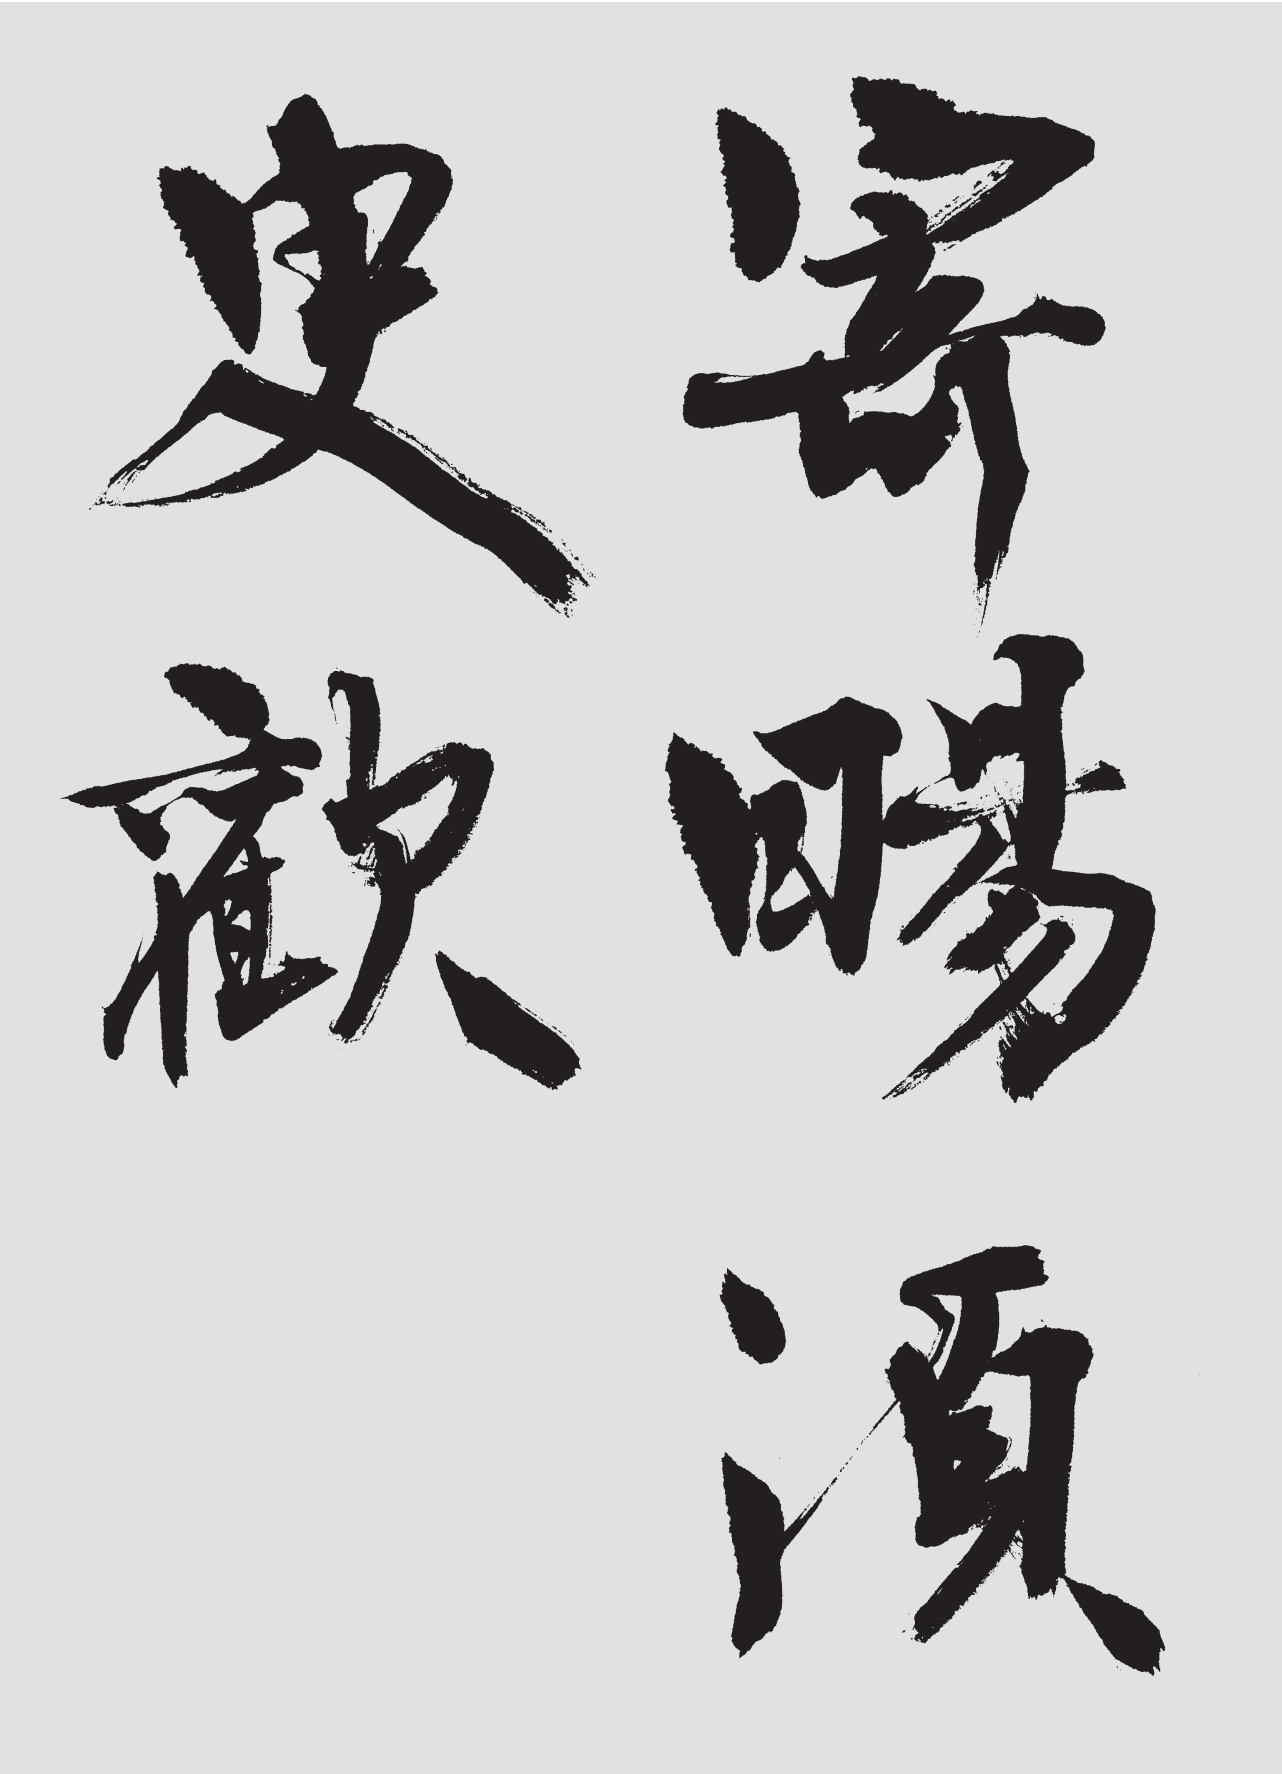 寄暢須
臾歡